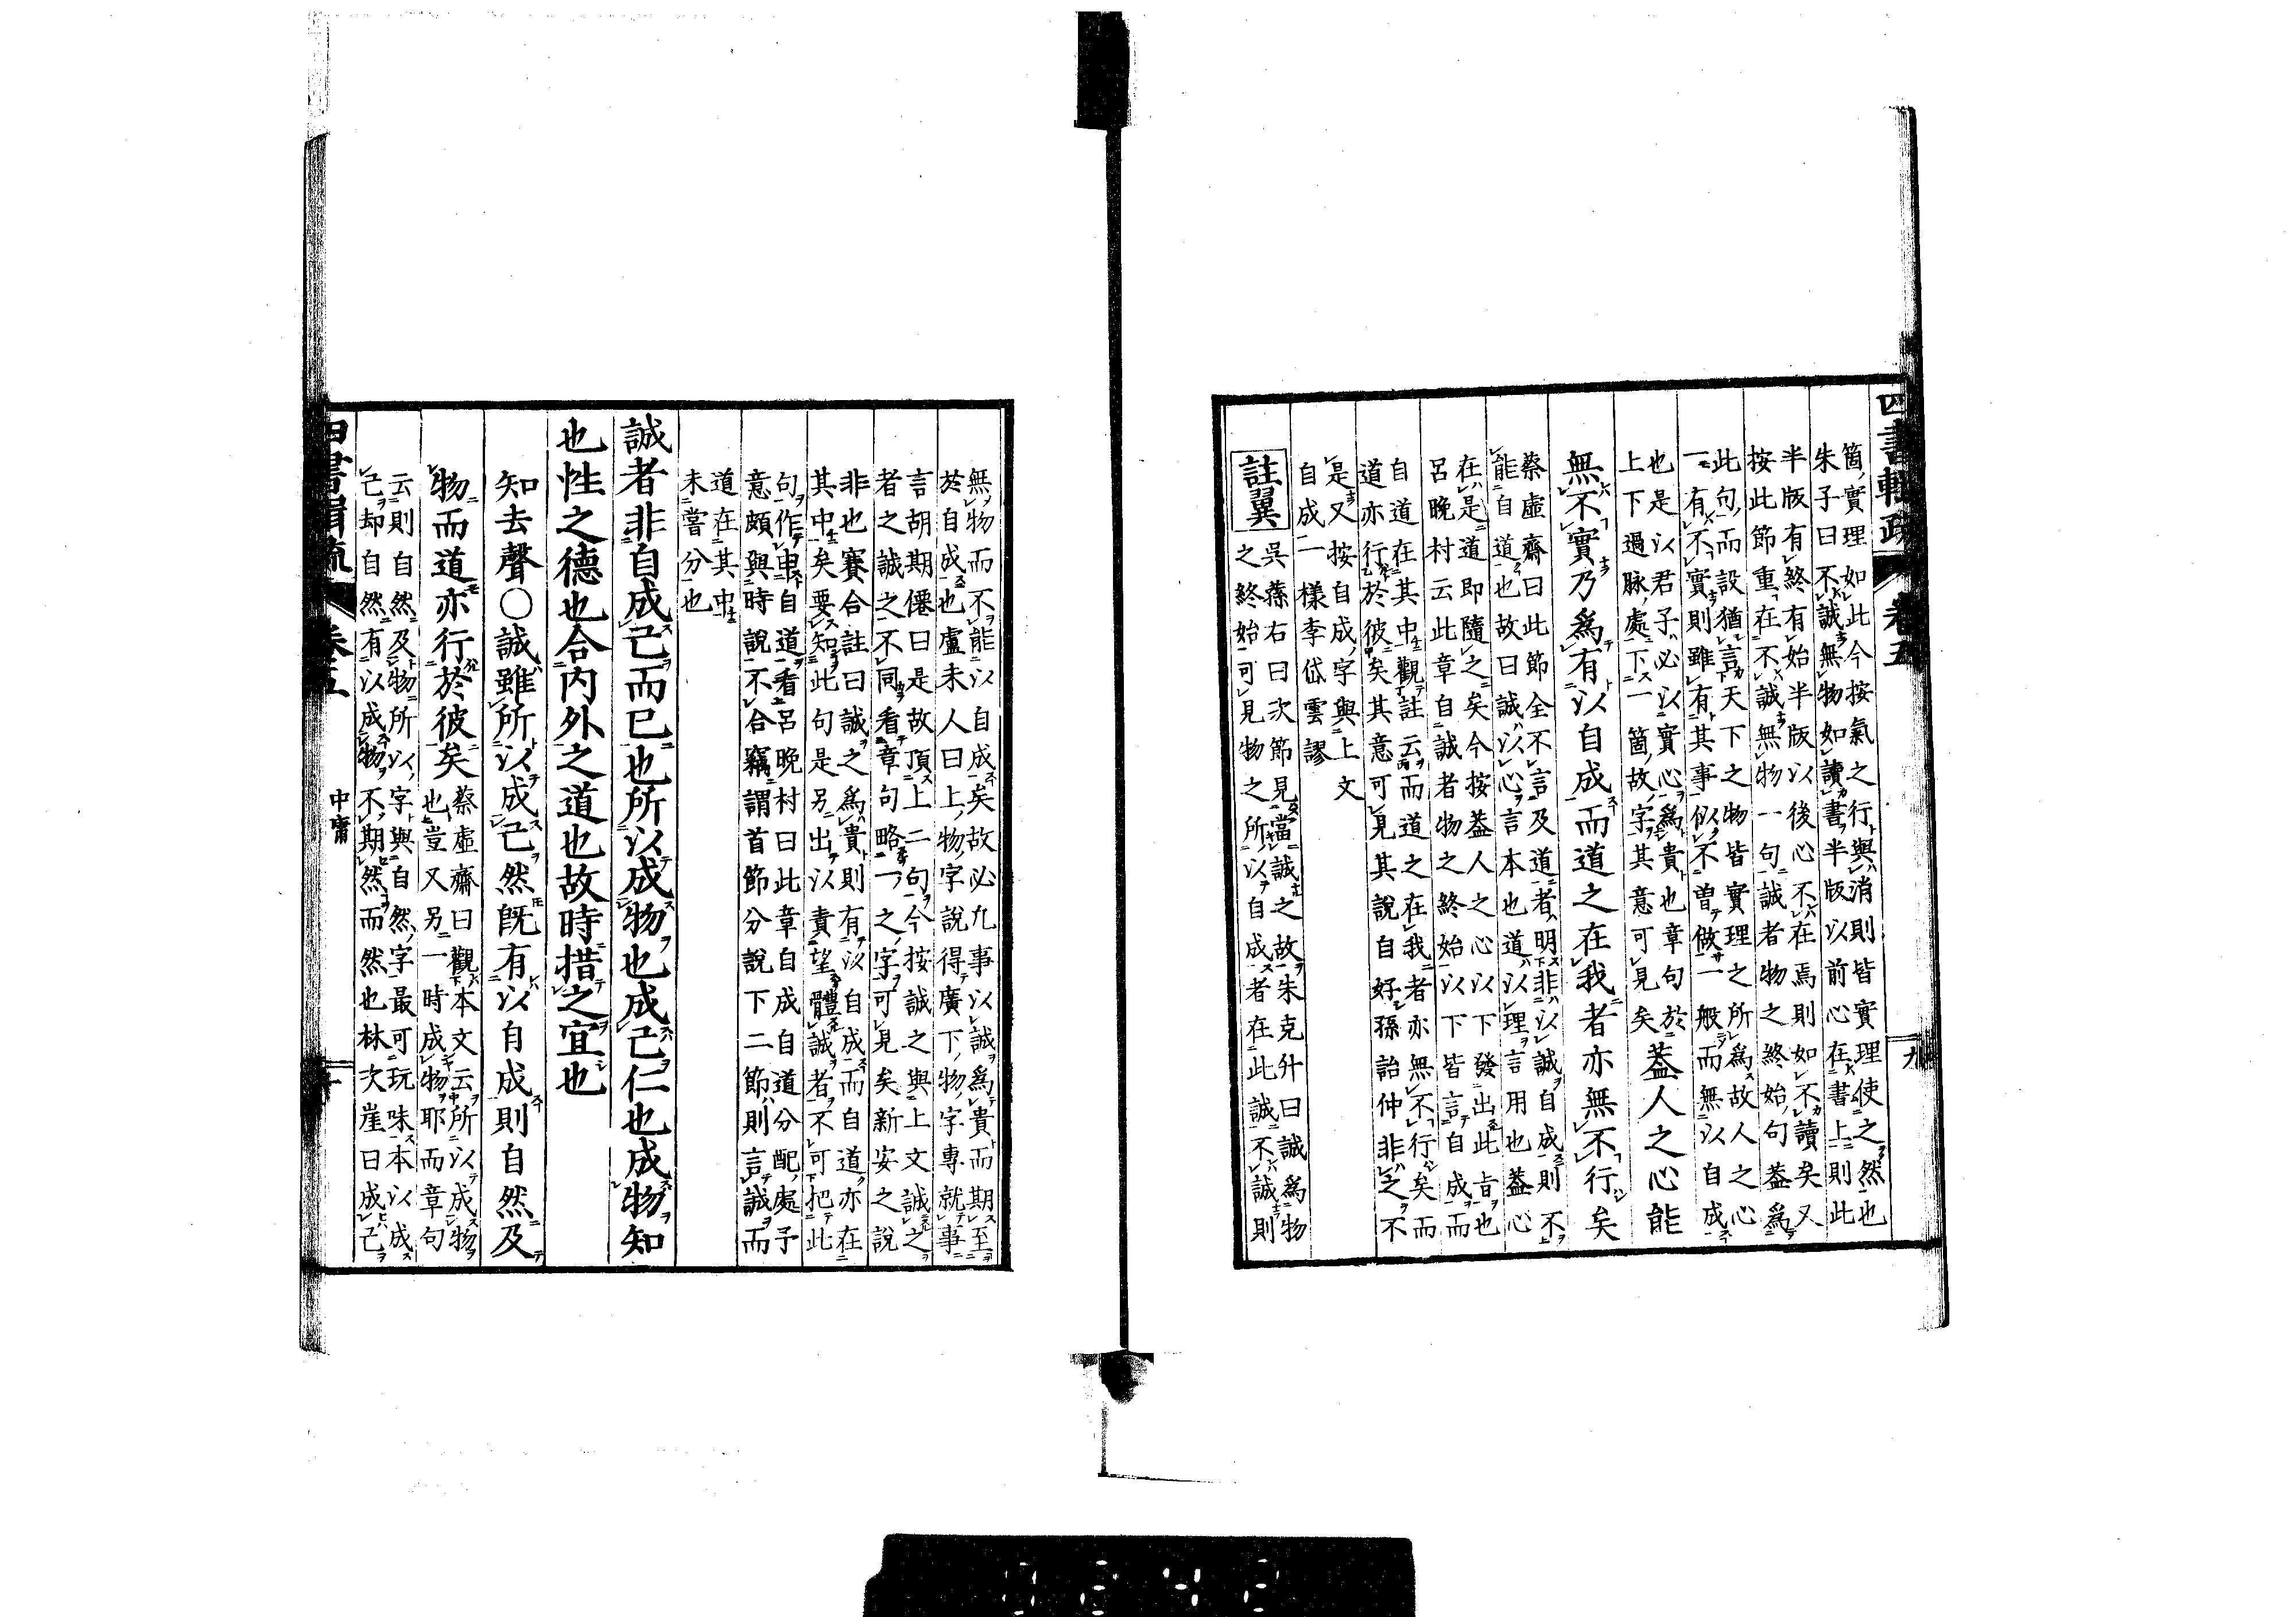 四書輯疏
卷五
九
箇實理如此今按氣之行與消則皆實理使之然也
朱子曰不誠無物如讀書半版以前心在書上則此
半版有終有始半版以後心不在焉則如不讀矣又
按此節重在不誠無物一句誠者物之終始句蓋爲
此句而設猶言天下之物皆實理之所爲故人之心
一有不實則雖有其事似不曾做一般而無以自成
也是以君子必以實心爲貴也章句於
上下過脉處下一箇故字其意可見矣
蓋人之心能
無不實乃爲有以自成而道之在我者亦無不行矣
蔡虛齋曰此節全不言及道者明非以誠自成則不
能自道也故曰誠以心言本也道以理言用也蓋心
在是道即隨之矣今按蓋人之心以下發出此旨也
呂晚村云此章自誠者物之終始以下皆言自成而
自道在其中觀註云而道之在我者亦無不行矣而
道亦行於彼矣其意可見其說自好孫詒仲非之不
是又按自成字與上文
自成一樣李岱雲謬
註翼
吳蓀右曰次節見當誠之故朱克升曰誠爲物
之終始可見物之所以自成者在此誠不誠則
無物而不能以自成矣故必凡事以誠爲貴而期至
於自成也盧未人曰上物字說得廣下物字專就事
言胡期僊曰是故頂上二句今按誠之與上文誠之
者之誠之不同看章句略一之字可見矣新安之說
非也賽合註曰誠之爲貴則有以自成而自道亦在
其中矣要知此句是另出以責望體誠者不可把此
句作串自道看呂晚村曰此章自成自道分配處予
意頗與時說不合竊謂首節分說下二節則言誠而
道在其中
未嘗分也
誠者非自成己而已也所以成物也成己仁也成物知
也性之德也合內外之道也故時措之宜也
知去聲○誠雖所以成己然既有以自成則自然及
物而道亦行於彼矣
蔡虛齋曰觀本文云所以成物
也豈又另一時成物耶而章句
云則自然及物所以字與自然字最可玩味本以成
己却自然有以成物不期然而然也林次崖曰成己
四書輯疏
卷五
中庸
十